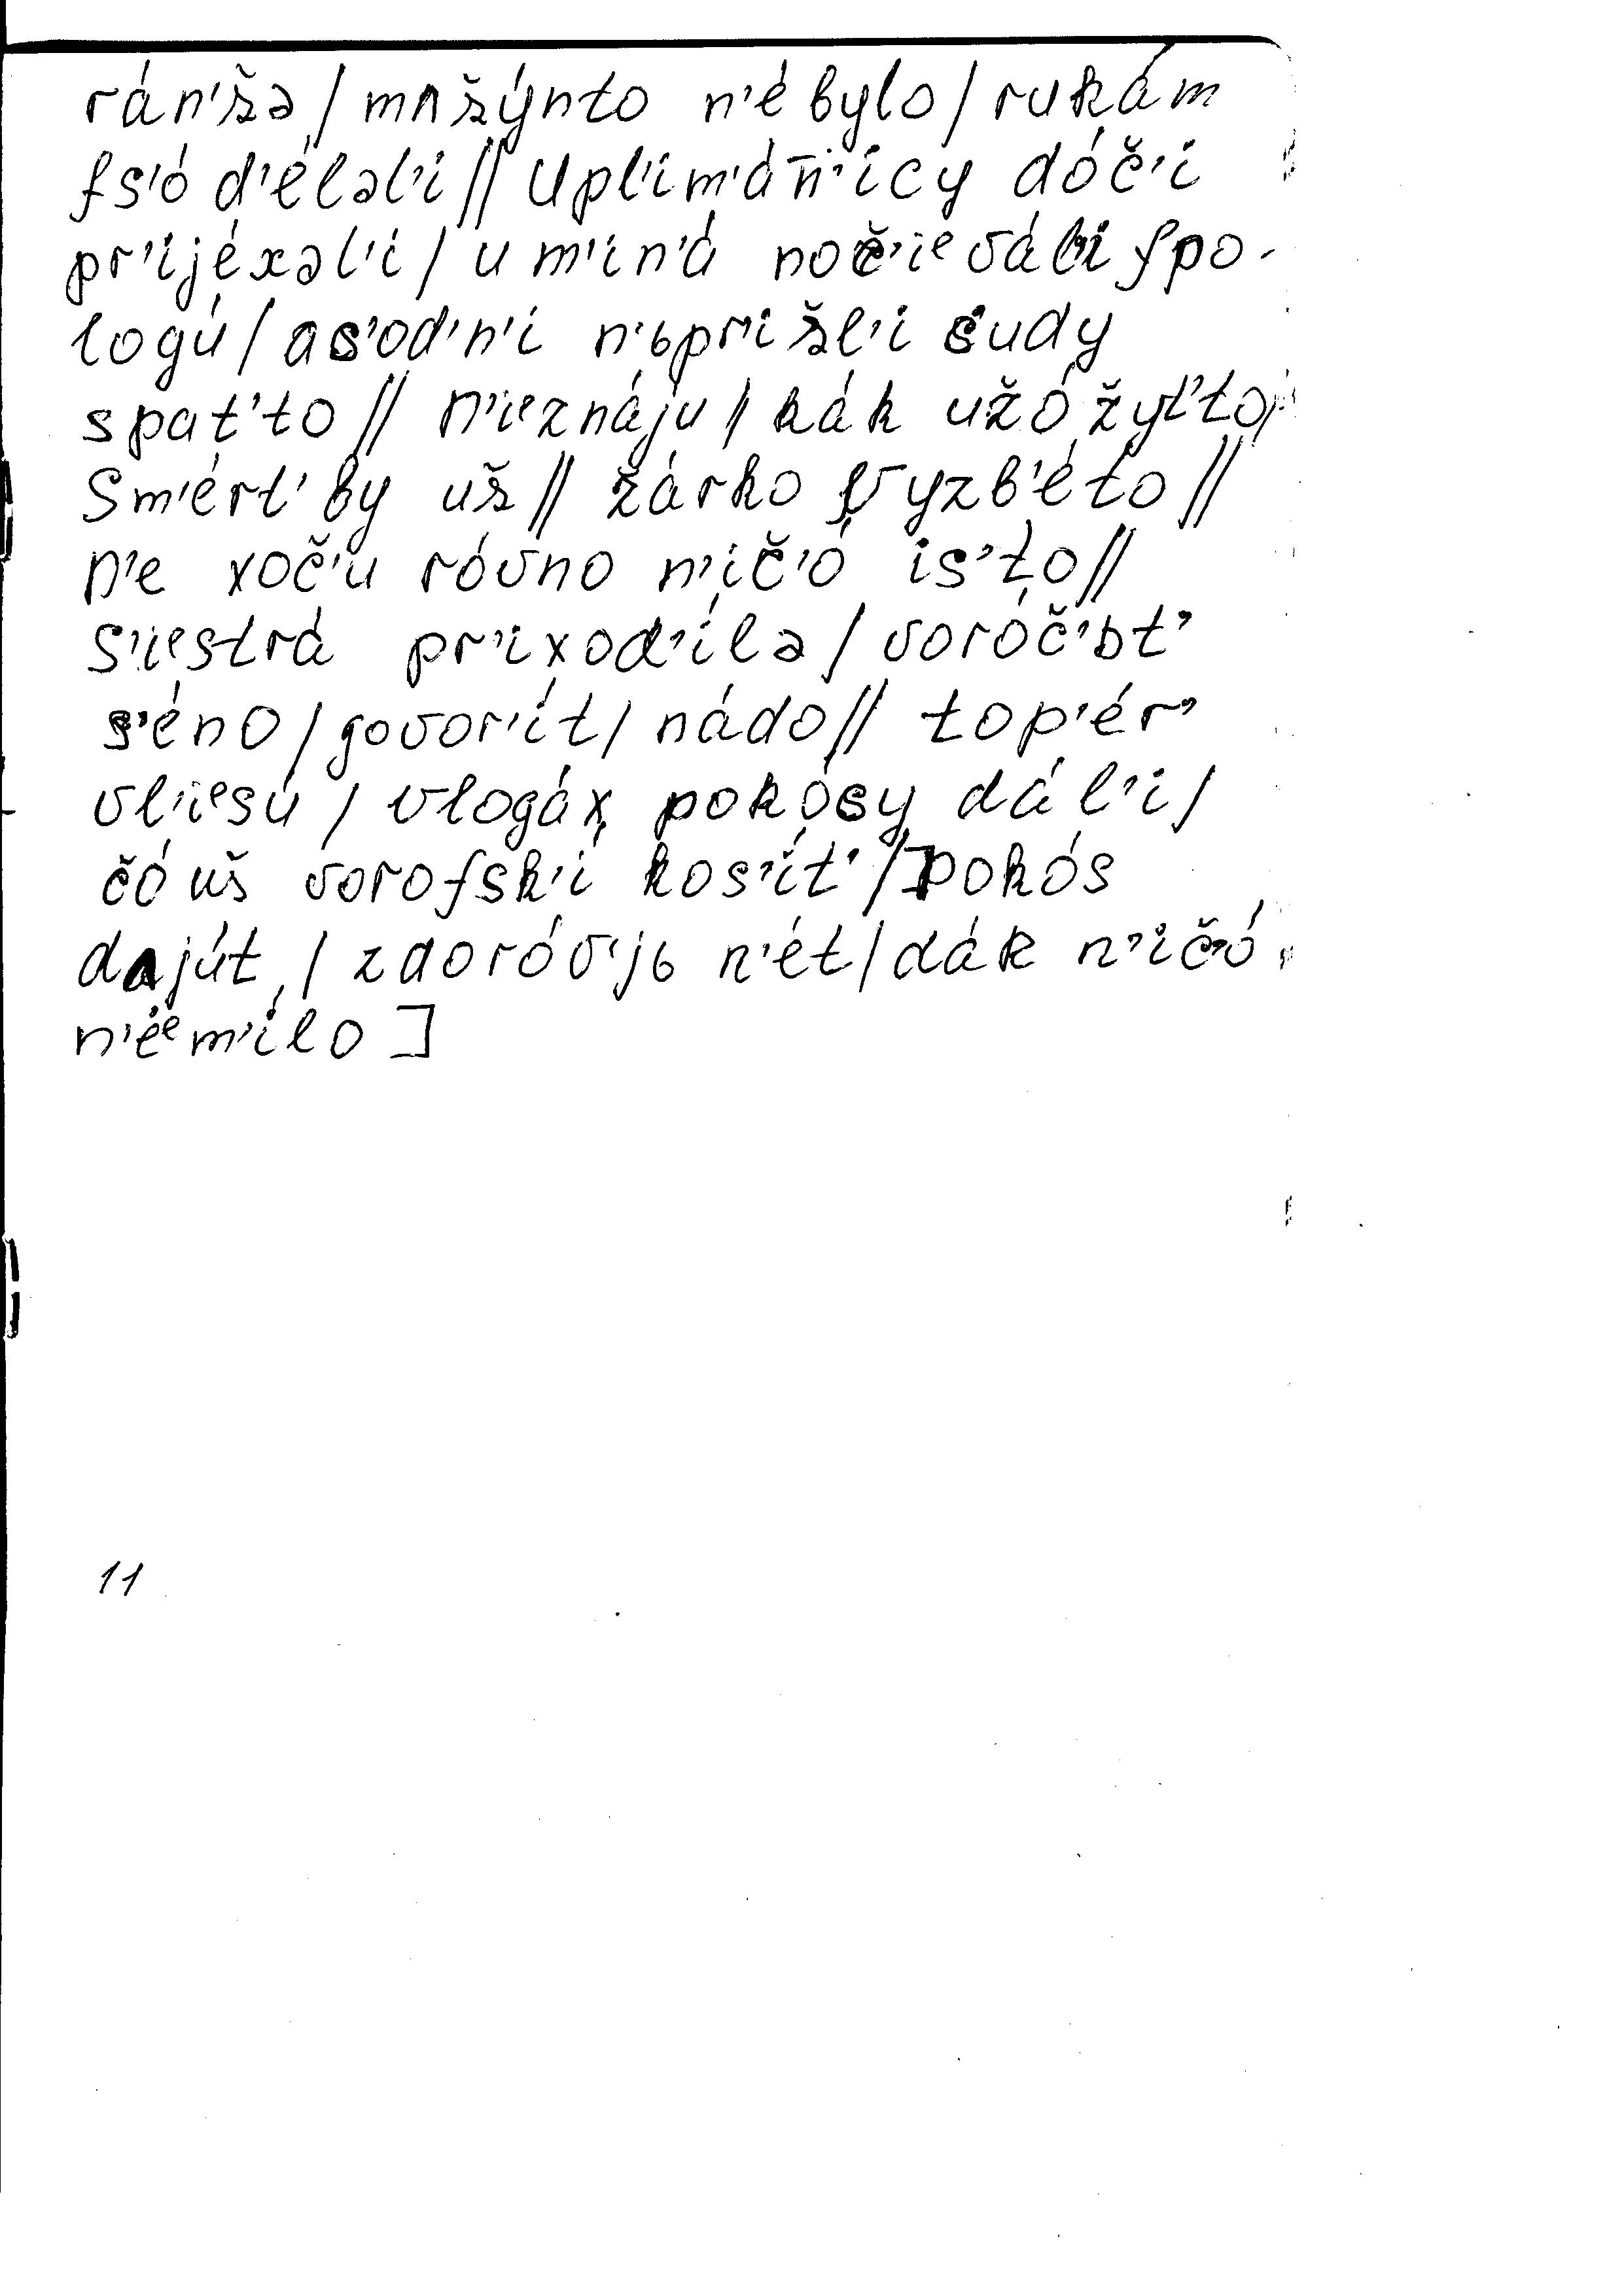 rán'šə / mʌšýnto n'é bylo / rukám
fs'ó d'éləl'i // Upl'im'án̄'icy dóč'i
pr'ijéxəl'i / u m'in'á noč'iᵉvál'i fpo-
logú / as'od'n'i n'ьpr'išl'i śudy
spat'to // N'iᵉznáju / kák užó žyt'to /
Sm'ért' by uš // žárko vyzb'éto //
N'e xoč'u róvno n'ič'ó is't'o //
S'iᵉstrá pr'ixod'ílə / voróč'ьt'
s'éno / govor'ít / nádo // top'ér'
vl'iᵉsú / vlogáx pokósy dál'i /
čó uš vorofsk'í kos'ít' / Pokós
dajút / zdoróv'jь n'ét / dák n'ič'ó
n'éᵉm'ílo ]
11